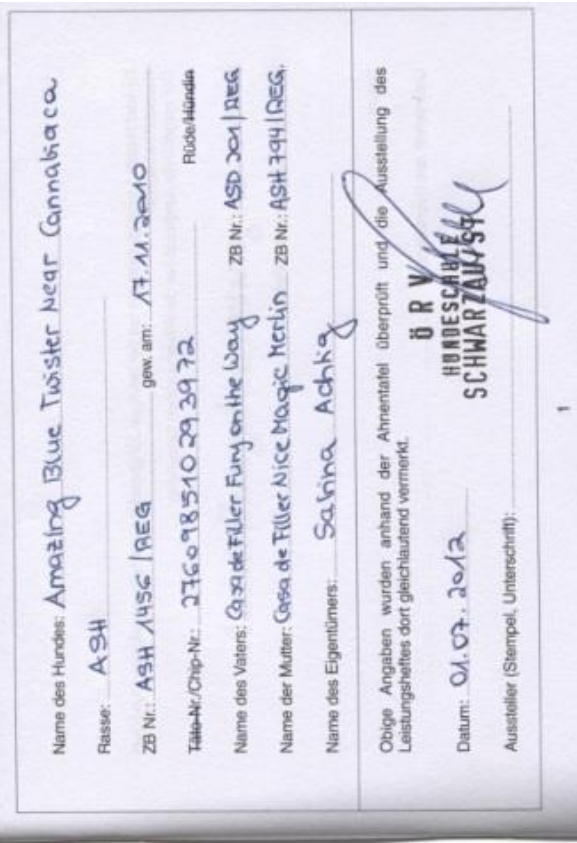 Name des Hundes: Amazing Blue Twister Near Cannabiaca
Rasse: ASH
ZB Nr.: ASH 1456 / REG gew. am: 17.11.2010
Täto-Nr./Chip-Nr.: 276098510293972 Rüde/Hündin
Name des Vaters: Casa de Filler Fury on the Way ZB Nr.: ASD 201 / REG
Name der Mutter: Casa de Filler Nice Magic Merlin ZB Nr.: ASH 794 / REG.
Name des Eigentümers: Sabina Achtig
Obige Angaben wurden anhand der Ahnentafel überprüft und die Ausstellung des
Leistungsheftes dort gleichlautend vermerkt.
Datum: 01.07.2012
Ö R V
HUNDESCHULE
SCHWARZAU/ST.
Aussteller (Stempel, Unterschrift):
1